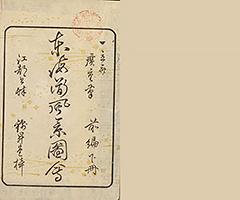 一立斎
廣重筆 前編下冊
東海道風景圖會
江都書林 錦昇堂梓